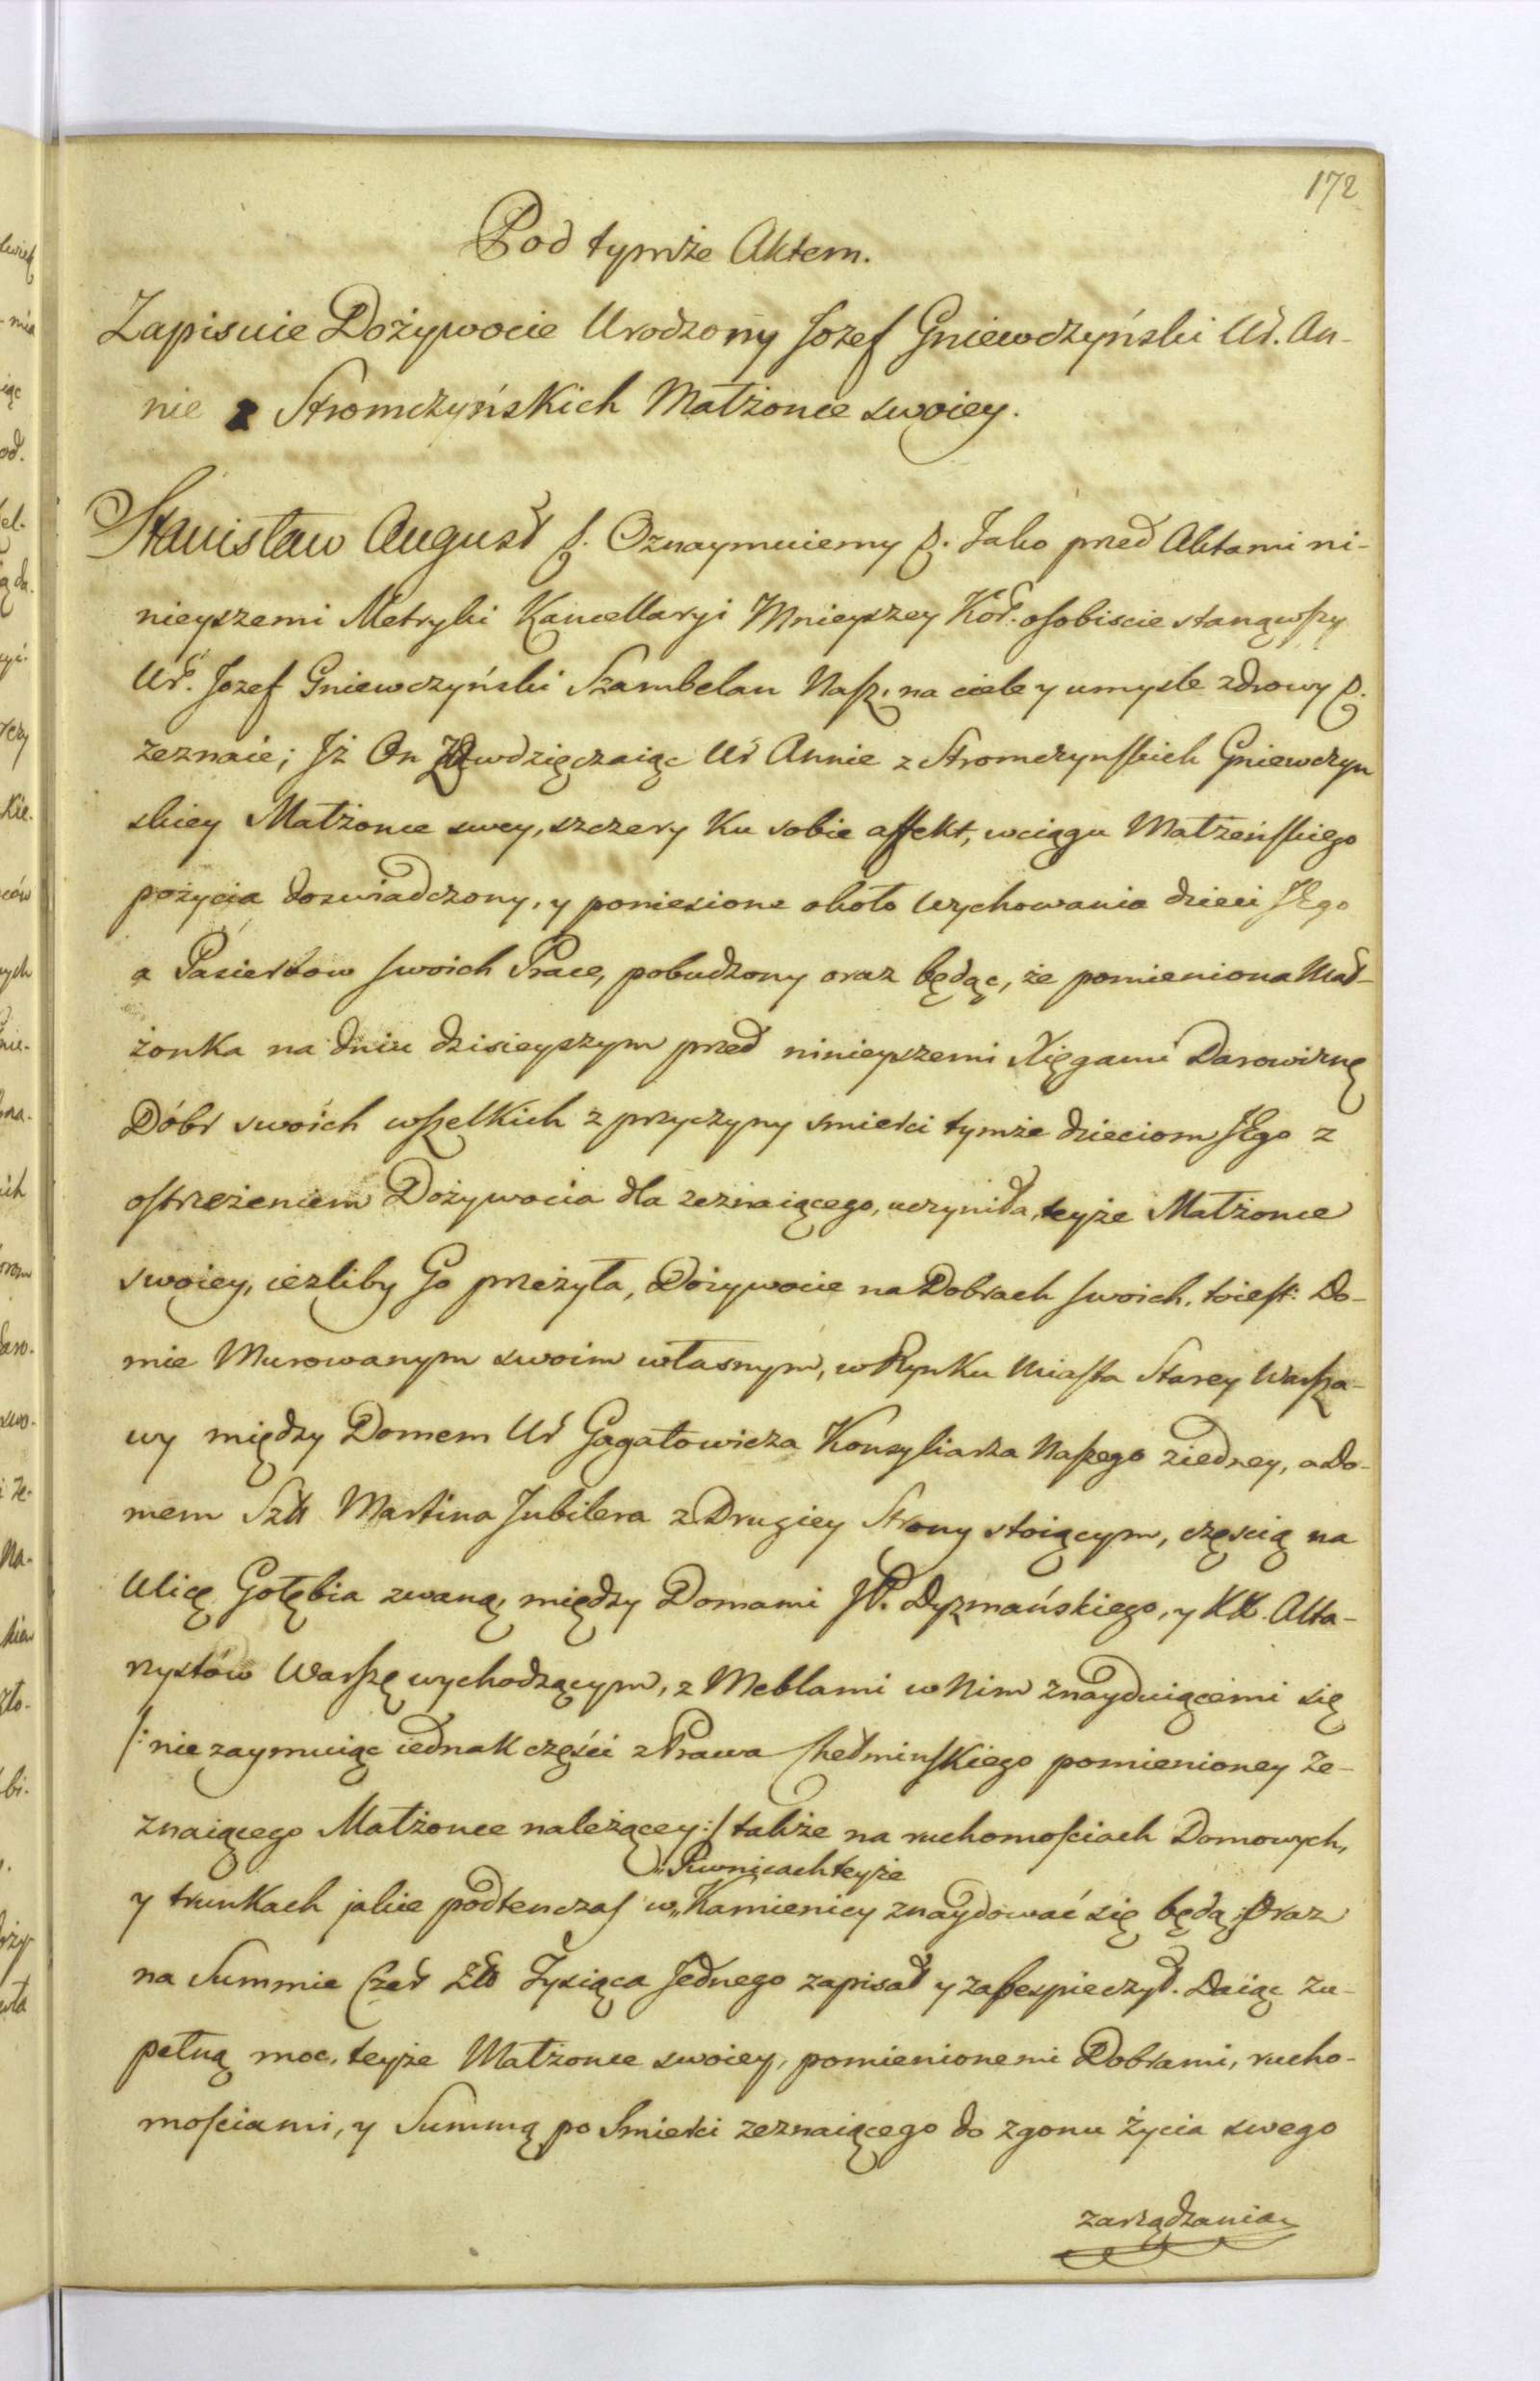 172
Pod tymże Aktem.
Zapisuie Dożywocie Urodzony Jozef Gniewczyński Ur. An-
nie z Stromczyńskich Małżonce swoiey.
Stanisław August p. Oznaymuiemy p. Jako przed Aktami ni-
nieyszemi Metryki Kancellaryi Mnieyszey Kor. osobiscie stanąwszy
Ur. Jozef Gniewczyński Szambelan Nasz, na ciele y umysle zdrowy p.
zeznaie; Jż On Zawdzięczaiąc Ur Annie z Stromczynskich Gniewczyn
skiey Małżonce swey, szczery Ku sobie affekt, wciągu Małżeńskiego
pożycia doswiadczony, y poniesione około wychowania dzieci JEgo
a Pasierbow swoich Prace, pobudzony oraz będąc, że pomieniona Mał-
żonka na dniu dzisieyszym przed ninieyszemi Xięgami Darowiznę
Dóbr swoich wszelkich z przyczyny smierci tymże dzieciom JEgo z
ostrzeżeniem Dożywocia dla zeznaiącego, uczyniła, teyże Małżonce
swoiey, ieżliby Go przeżyła, Dożywocie na Dobrach swoich, toiest: Do-
mie Murowanym swoim własnym, w Rynku Miasta Starey Warsza-
wy między Domem Ur Gagatowicza Konsyliarza Naszego ziedney, a Do-
mem Szl Martina Jubilera z Drugiey Strony stoiącym, częścią na
Ulicę Gołębia zwaną, między Domami JP. Dyzmańskiego, y XX. Alta-
rystów Warszę wychodzącym, z Meblami w Nim znayduiącemi się
/: nie zaymuiąc iednak części z Prawa Chełminskiego pomienioney Ze-
znaiącego Małżonce należącey :/ także na ruchomościach Domowych,
„Piwnicach teyże
y trunkach jakie podtenczas w„ Kamienicy znaydować się będą; Oraz
na Summie Czer Zło Tysiąca Jednego zapisał y zabespieczył. Daiąc zu-
pełną moc, teyże Małżonce swoiey, pomienionemi Dobrami, rucho-
mościami, y Summą po Smierci zeznaiącego do zgonu życia swego
zarządzania